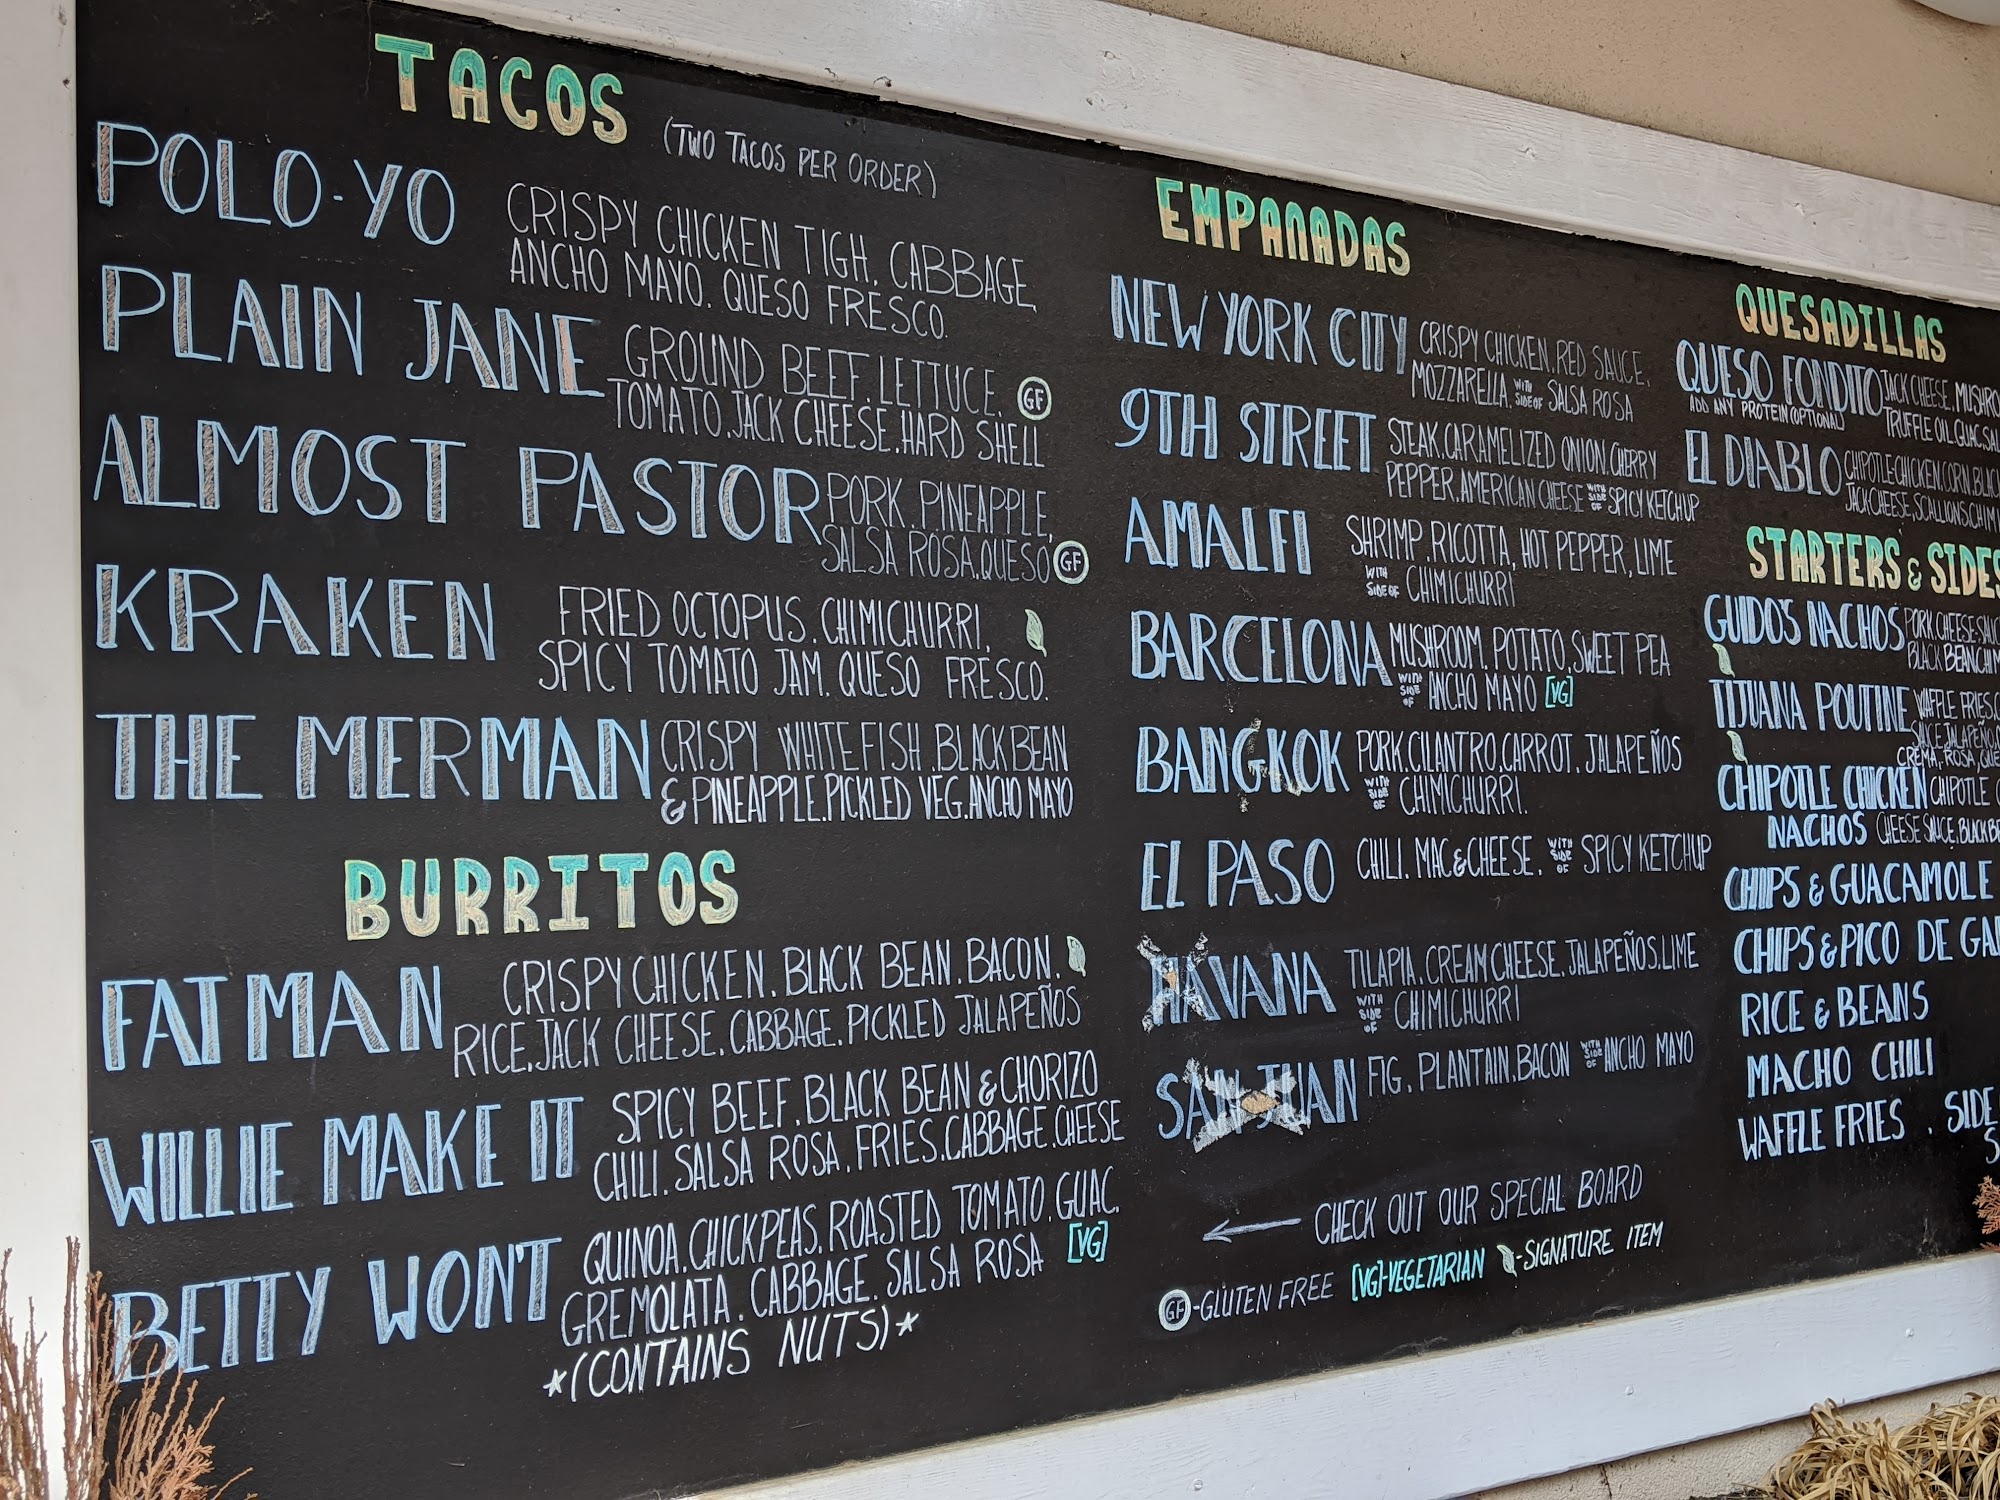 TACOS (TWO TACOS PER ORDER)
POLO-YO
CRISPY CHICKEN TIGH. CABBAGE,
ANCHO MAYO. QUESO FRESCO.
PLAIN JANE
GROUND BEEF. LETTUCE. GF
TOMATO. JACK CHEESE. HARD SHELL
ALMOST PASTOR
PORK. PINEAPPLE,
SALSA ROSA. QUESO GF
KRAKEN
FRIED OCTOPUS. CHIMICHURRI.
SPICY TOMATO JAM. QUESO FRESCO.
THE MERMAN
CRISPY WHITE FISH. BLACK BEAN
& PINEAPPLE. PICKLED VEG. ANCHO MAYO
BURRITOS
FATMAN
CRISPY CHICKEN. BLACK BEAN. BACON.
RICE. JACK CHEESE. CABBAGE. PICKLED JALAPEÑOS
WILLIE MAKE IT
SPICY BEEF. BLACK BEAN & CHORIZO
CHILI. SALSA ROSA. FRIES. CABBAGE. CHEESE
BETTY WON'T
QUINOA. CHICKPEAS. ROASTED TOMATO. GUAC.
GREMOLATA. CABBAGE. SALSA ROSA [VG]
*(CONTAINS NUTS)*
EMPANADAS
NEW YORK CITY
CRISPY CHICKEN. RED SAUCE,
MOZZARELLA. WITH SIDE OF SALSA ROSA
9TH STREET
STEAK. CARAMELIZED ONION. CHERRY
PEPPER. AMERICAN CHEESE WITH SIDE OF SPICY KETCHUP
AMALFI
SHRIMP. RICOTTA, HOT PEPPER, LIME
WITH SIDE OF CHIMICHURRI
BARCELONA
MUSHROOM. POTATO, SWEET PEA
WITH SIDE OF ANCHO MAYO [VG]
BANGKOK
PORK. CILANTRO. CARROT. JALAPEÑOS
WITH SIDE OF CHIMICHURRI.
EL PASO
CHILI. MAC & CHEESE. WITH SIDE OF SPICY KETCHUP
HAVANA
TILAPIA. CREAM CHEESE. JALAPEÑOS. LIME
WITH SIDE OF CHIMICHURRI
SAN JUAN
FIG. PLANTAIN. BACON WITH SIDE OF ANCHO MAYO
CHECK OUT OUR SPECIAL BOARD
GF-GLUTEN FREE [VG]-VEGETARIAN -SIGNATURE ITEM
QUESADILLAS
QUESO FONDITO
JACK CHEESE. MUSHRO
ADD ANY PROTEIN (OPTIONAL)
TRUFFLE OIL. GUAC. SAL
EL DIABLO
CHIPOTLE CHICKEN. CORN. BLAC
JACK CHEESE, SCALLIONS. CHIM
STARTERS & SIDES
GUIDO'S NACHOS
PORK. CHEESE SAUC
BLACK BEAN. CHIM
TIJUANA POUTINE
WAFFLE FRIES. C
SAUCE. JALAPEÑO.
CREMA, ROSA, QUE
CHIPOTLE CHICKEN NACHOS
CHIPOTLE C
CHEESE SAUCE, BLACK BE
CHIPS & GUACAMOLE
CHIPS & PICO DE GAL
RICE & BEANS
MACHO CHILI
WAFFLE FRIES . SIDE
S